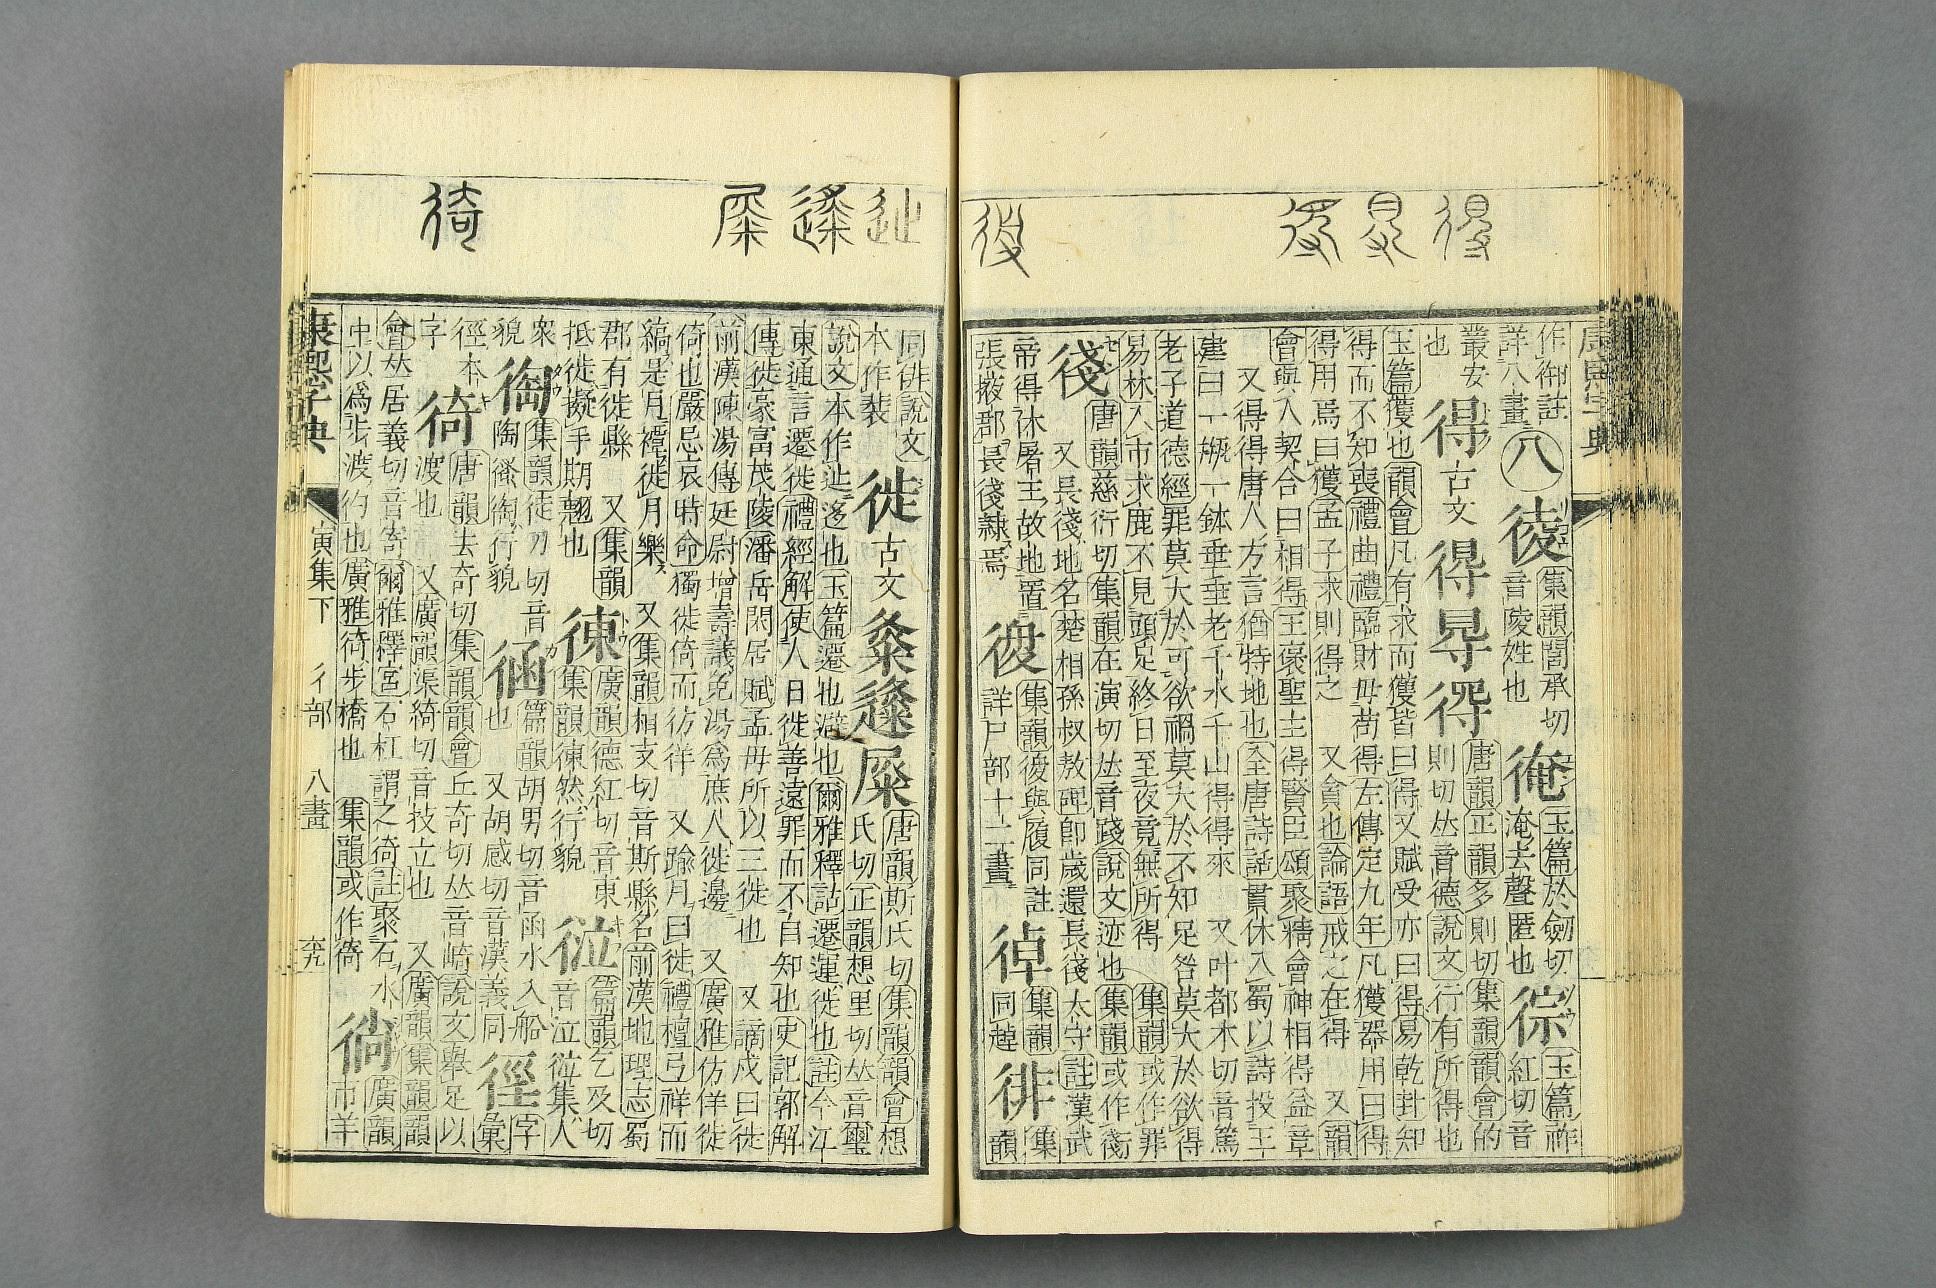 得
徛
康熙字典
作御註
詳八畫
八
集韻閭承切
音陵姓也
玉篇於劒切
淹去聲匿也
徖
玉篇祚
紅切音
叢安
也
得
古文
唐韻正韻多則切集韻韻會的
則切𠀤音德說文行有所得也
玉篇獲也韻會凡有求而獲皆曰得又賦受亦曰得易乾卦知
得而不知喪禮曲禮臨財毋苟得左傳定九年凡獲器用曰得
得用焉曰獲孟子求則得之 又貪也論語戒之在得 又韻
會與人契合曰相得王褒聖主得賢臣頌聚精會神相得益章
又得得唐人方言猶特地也全唐詩話貫休入蜀以詩投王
建曰一瓶一鉢垂垂老千水千山得得來 又叶都木切音篤
老子道德經罪莫大於可欲禍莫大於不知足咎莫大於欲得
易林入市求鹿不見頭足終日至夜竟無所得 集韻或作
唐韻慈衍切集韻在演切𠀤音踐說文迹也 集韻或作
又長 地名楚相孫叔敖碑卽歲還長 太守註漢武
帝得休屠王故地置
張掖郡長 隸焉
集韻 與履同註
詳尸部十二畫
集韻
同趠
徘
集
韻
同俳說文
本作裴
徙
古文
屎
唐韻斯氏切集韻韻會想
氏切正韻想里切𠀤音璽
說文本作辿迻也玉篇遷也避也爾雅釋詁遷運徙也註今江
東通言遷徙禮經解使人日徙善遠罪而不自知也史記郭解
傳徙豪富茂陵潘岳閑居賦孟母所以三徙也 又謫戍曰徙
前漢陳湯傳廷尉增壽議免湯爲庶人徙邊 又廣雅仿佯徙
倚也嚴忌哀時命獨徙倚而彷徉 又踰月曰徙禮檀弓祥而
縞是月禫徙月樂 又集韻相支切音斯縣名前漢地理志蜀
郡有徙縣 又集韻
抵徙擬手期魋也
徚
廣韻德紅切音東
集韻徚然行貌
篇韻乞及切
音泣 集人
衆
貌
集韻徒刀切音
陶 行貌
篇韻胡男切音函水入船
也 又胡感切音漢義同
徑
字
彙
徑本
字
徛
唐韻去奇切集韻韻會丘奇切𠀤音崎說文舉足以
渡也 又廣韻渠綺切音技立也 又廣韻集韻韻
會𠀤居義切音寄爾雅釋宮石杠謂之徛註聚石水
中以爲步渡彴也廣雅徛步橋也 集韻或作
徜
廣韻
市羊
康熙字典
寅集下 彳部 八畫